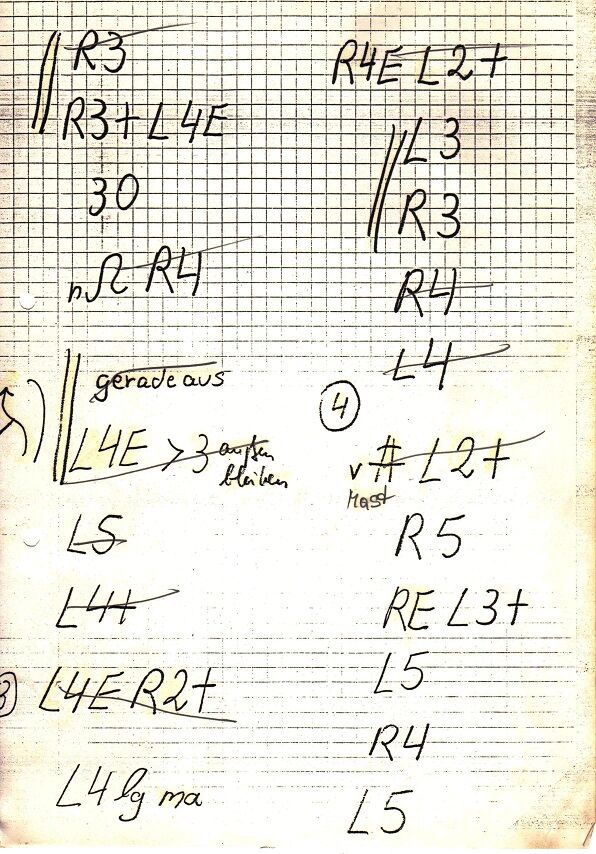 R3
R3+ L4E
30
nΩ R4
geradeaus
L4E > 3 außen
bleiben
L5
L4+
3 L4E R2+
L4 lg ma
R4E L2+
L3
R3
R4
L4
4
v # L2+
Mast
R5
RE L3+
L5
R4
L5